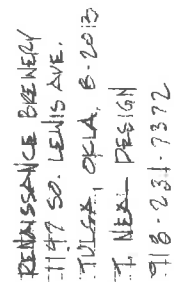 RENAISSANCE BREWERY
1147 SO. LEWIS AVE.
TULSA, OKLA. 8-2013
T. NEAL DESIGN
918-231-7372